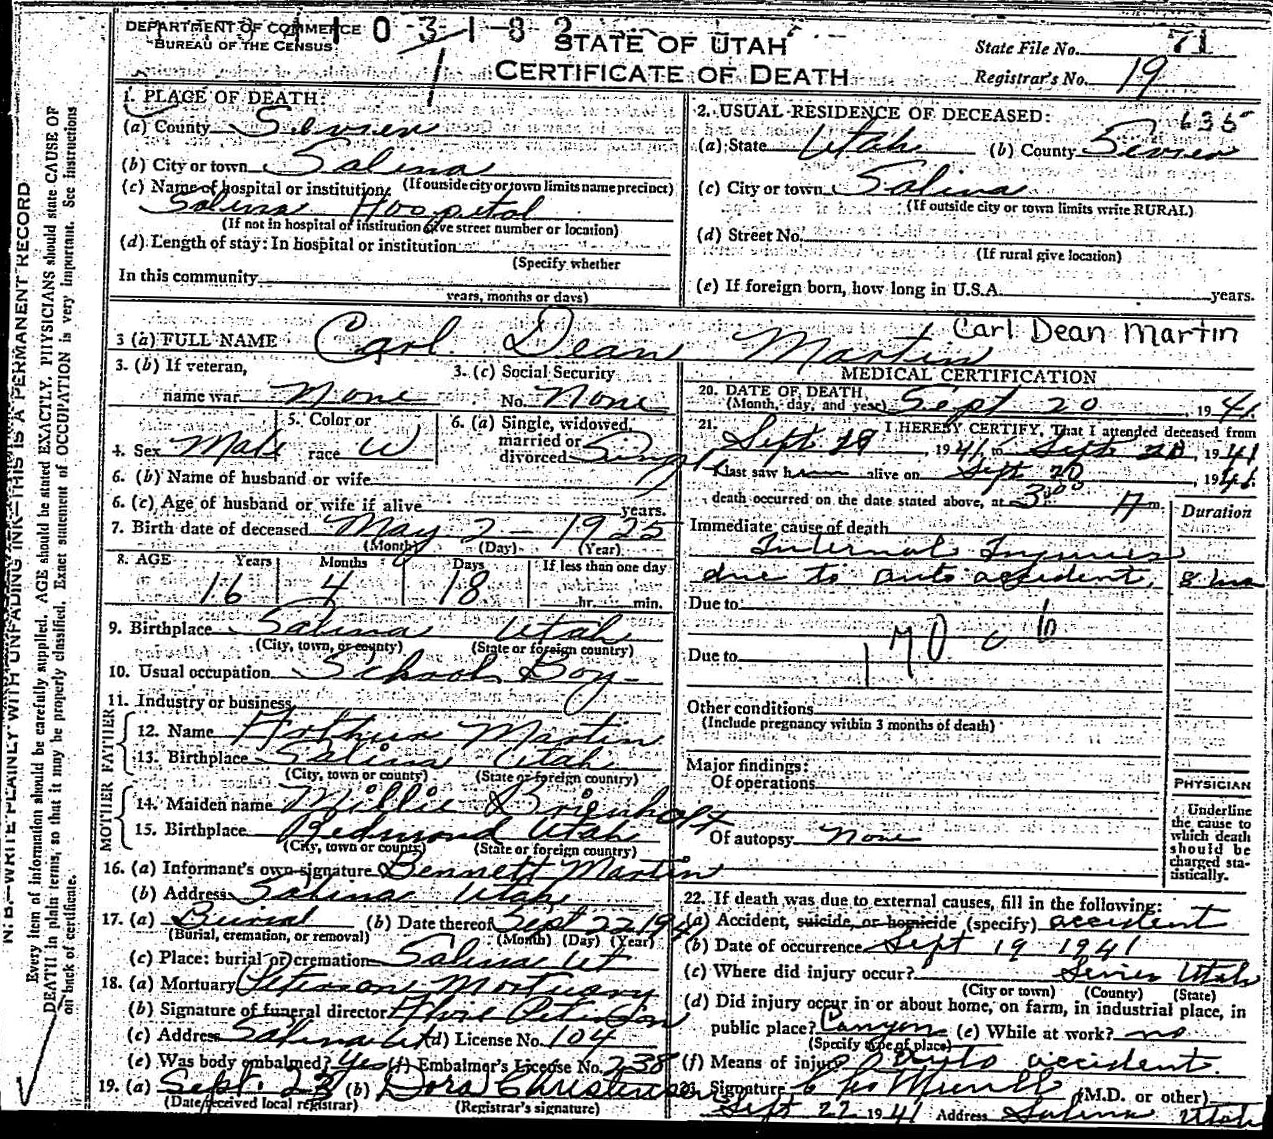 DEPARTMENT OF COMMERCE
BUREAU OF THE CENSUS
0 3 1 8 2
STATE OF UTAH
CERTIFICATE OF DEATH
State File No. 71
Registrar's No. 19
1. PLACE OF DEATH:
(a) County Sevier
(b) City or town Salina
(If outside city or town limits name precinct)
(c) Name of hospital or institution:
Salina Hospital
(If not in hospital or institution give street number or location)
(d) Length of stay: In hospital or institution
(Specify whether
In this community
years, months or days)
2. USUAL RESIDENCE OF DECEASED: 635
(a) State Utah (b) County Sevier
(c) City or town Salina
(If outside city or town limits write RURAL)
(d) Street No.
(If rural give location)
(e) If foreign born, how long in U.S.A. years.
3 (a) FULL NAME Carl Dean Martin
Carl Dean Martin
3. (b) If veteran,
name war None
3. (c) Social Security
No. None
4. Sex Male
5. Color or
race W
6. (a) Single, widowed,
married or
divorced Single
6. (b) Name of husband or wife
6. (c) Age of husband or wife if alive years.
7. Birth date of deceased May 2 - 1925
(Month) (Day) (Year)
8. AGE Years Months Days If less than one day
16 4 18 hr. min.
9. Birthplace Salina Utah
(City, town, or county) (State or foreign country)
10. Usual occupation School Boy
11. Industry or business
FATHER
12. Name Arthur Martin
13. Birthplace Salina Utah
(City, town or county) (State or foreign country)
MOTHER
14. Maiden name Millie
15. Birthplace Redmond Utah
(City, town or county) (State or foreign country)
16. (a) Informant's own signature Bennett Martin
(b) Address Salina Utah
17. (a) Burial (b) Date thereof Sept 22 1941
(Burial, cremation, or removal) (Month) (Day) (Year)
(c) Place: burial or cremation Salina Ut
18. (a) Mortuary Peterson Mortuary
(b) Signature of funeral director Peterson
(c) Address Salina Ut (d) License No. 104
(e) Was body embalmed? Yes (f) Embalmer's License No. 238
19. (a) Sept. 23 (b) Dora Christensen
(Date received local registrar) (Registrar's signature)
MEDICAL CERTIFICATION
20. DATE OF DEATH
(Month, day, and year) Sept 20, 1941
21. I HEREBY CERTIFY, That I attended deceased from
Sept 19, 1941, to Sept 20, 1941
I last saw him alive on Sept 20, 1941
death occurred on the date stated above, at 3:00 A m.
Duration
Immediate cause of death
Internal Injuries
due to auto accident, 8 hrs
Due to
170 c b
Due to
Other conditions
(Include pregnancy within 3 months of death)
Major findings:
Of operations
Of autopsy None
PHYSICIAN
Underline
the cause to
which death
should be
charged sta-
tistically.
22. If death was due to external causes, fill in the following:
(a) Accident, suicide, or homicide (specify) accident
(b) Date of occurrence Sept 19 1941
(c) Where did injury occur? Sevier Utah
(City or town) (County) (State)
(d) Did injury occur in or about home, on farm, in industrial place, in
public place? Canyon (e) While at work? no
(Specify type of place)
(f) Means of injury auto accident.
23. Signature (M.D. or other)
Sept 22 1941 Address Salina Utah
N. B.—WRITE PLAINLY WITH UNFADING INK—THIS IS A PERMANENT RECORD
Every item of information should be carefully supplied. AGE should be stated EXACTLY. PHYSICIANS should state CAUSE OF
DEATH in plain terms, so that it may be properly classified. Exact statement of OCCUPATION is very important. See instructions
on back of certificate.